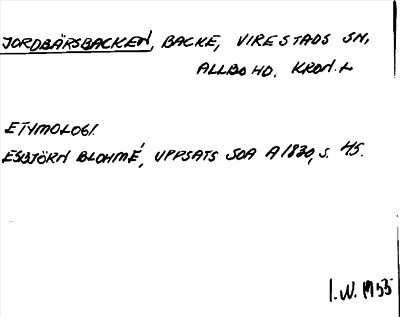 JORDBÄRSBACKEN, BACKE, VIRESTADS SN,
ALLBO HD. KRON. L
ETYMOLOGI.
ESBJÖRN BLOHMÉ, UPPSATS SOA A 1830, S. 45.
I.W. 1953